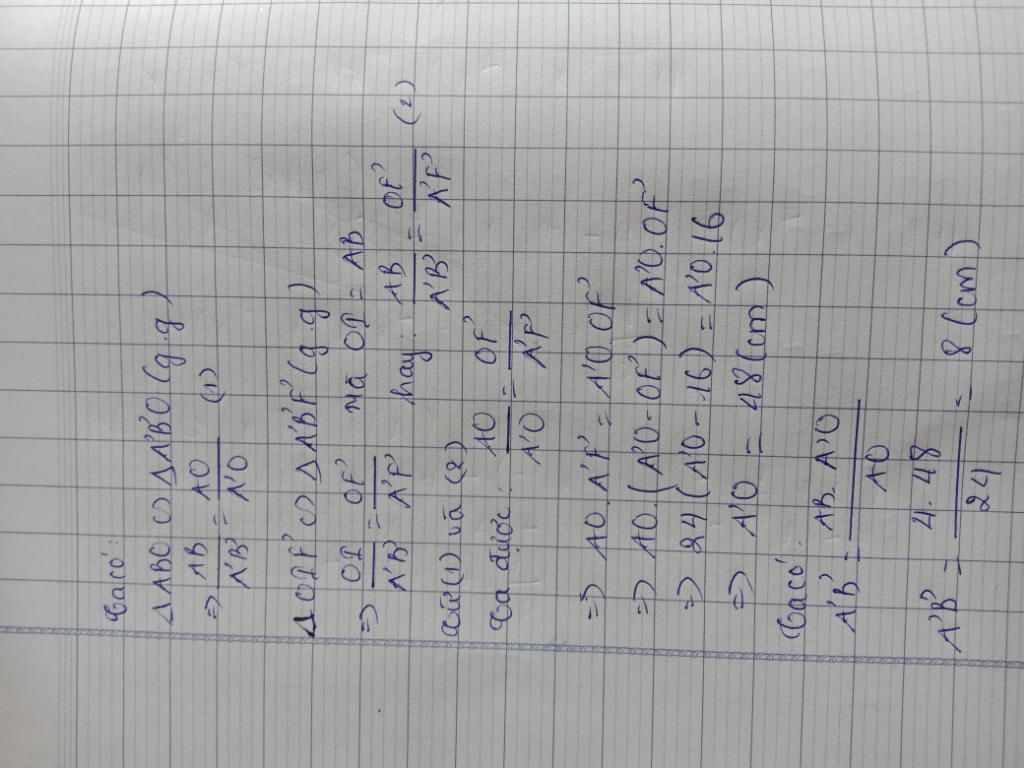 Ta có:
Δ ABO ∽ Δ A'B'O (g.g)
⇒ AB/A'B' = AO/A'O (1)
Δ OIF' ∽ Δ A'B'F' (g.g)
⇒ OI/A'B' = OF'/A'F' mà OI = AB
hay: AB/A'B' = OF'/A'F' (2)
Từ (1) và (2)
Ta được: AO/A'O = OF'/A'F'
⇒ AO.A'F' = A'O.OF'
⇒ AO.(A'O - OF') = A'O.OF'
⇒ 24(A'O - 16) = A'O.16
⇒ A'O = 48(cm)
Ta có:
A'B' = AB.A'O/AO
A'B' = 4.48/24 = 8 (cm)